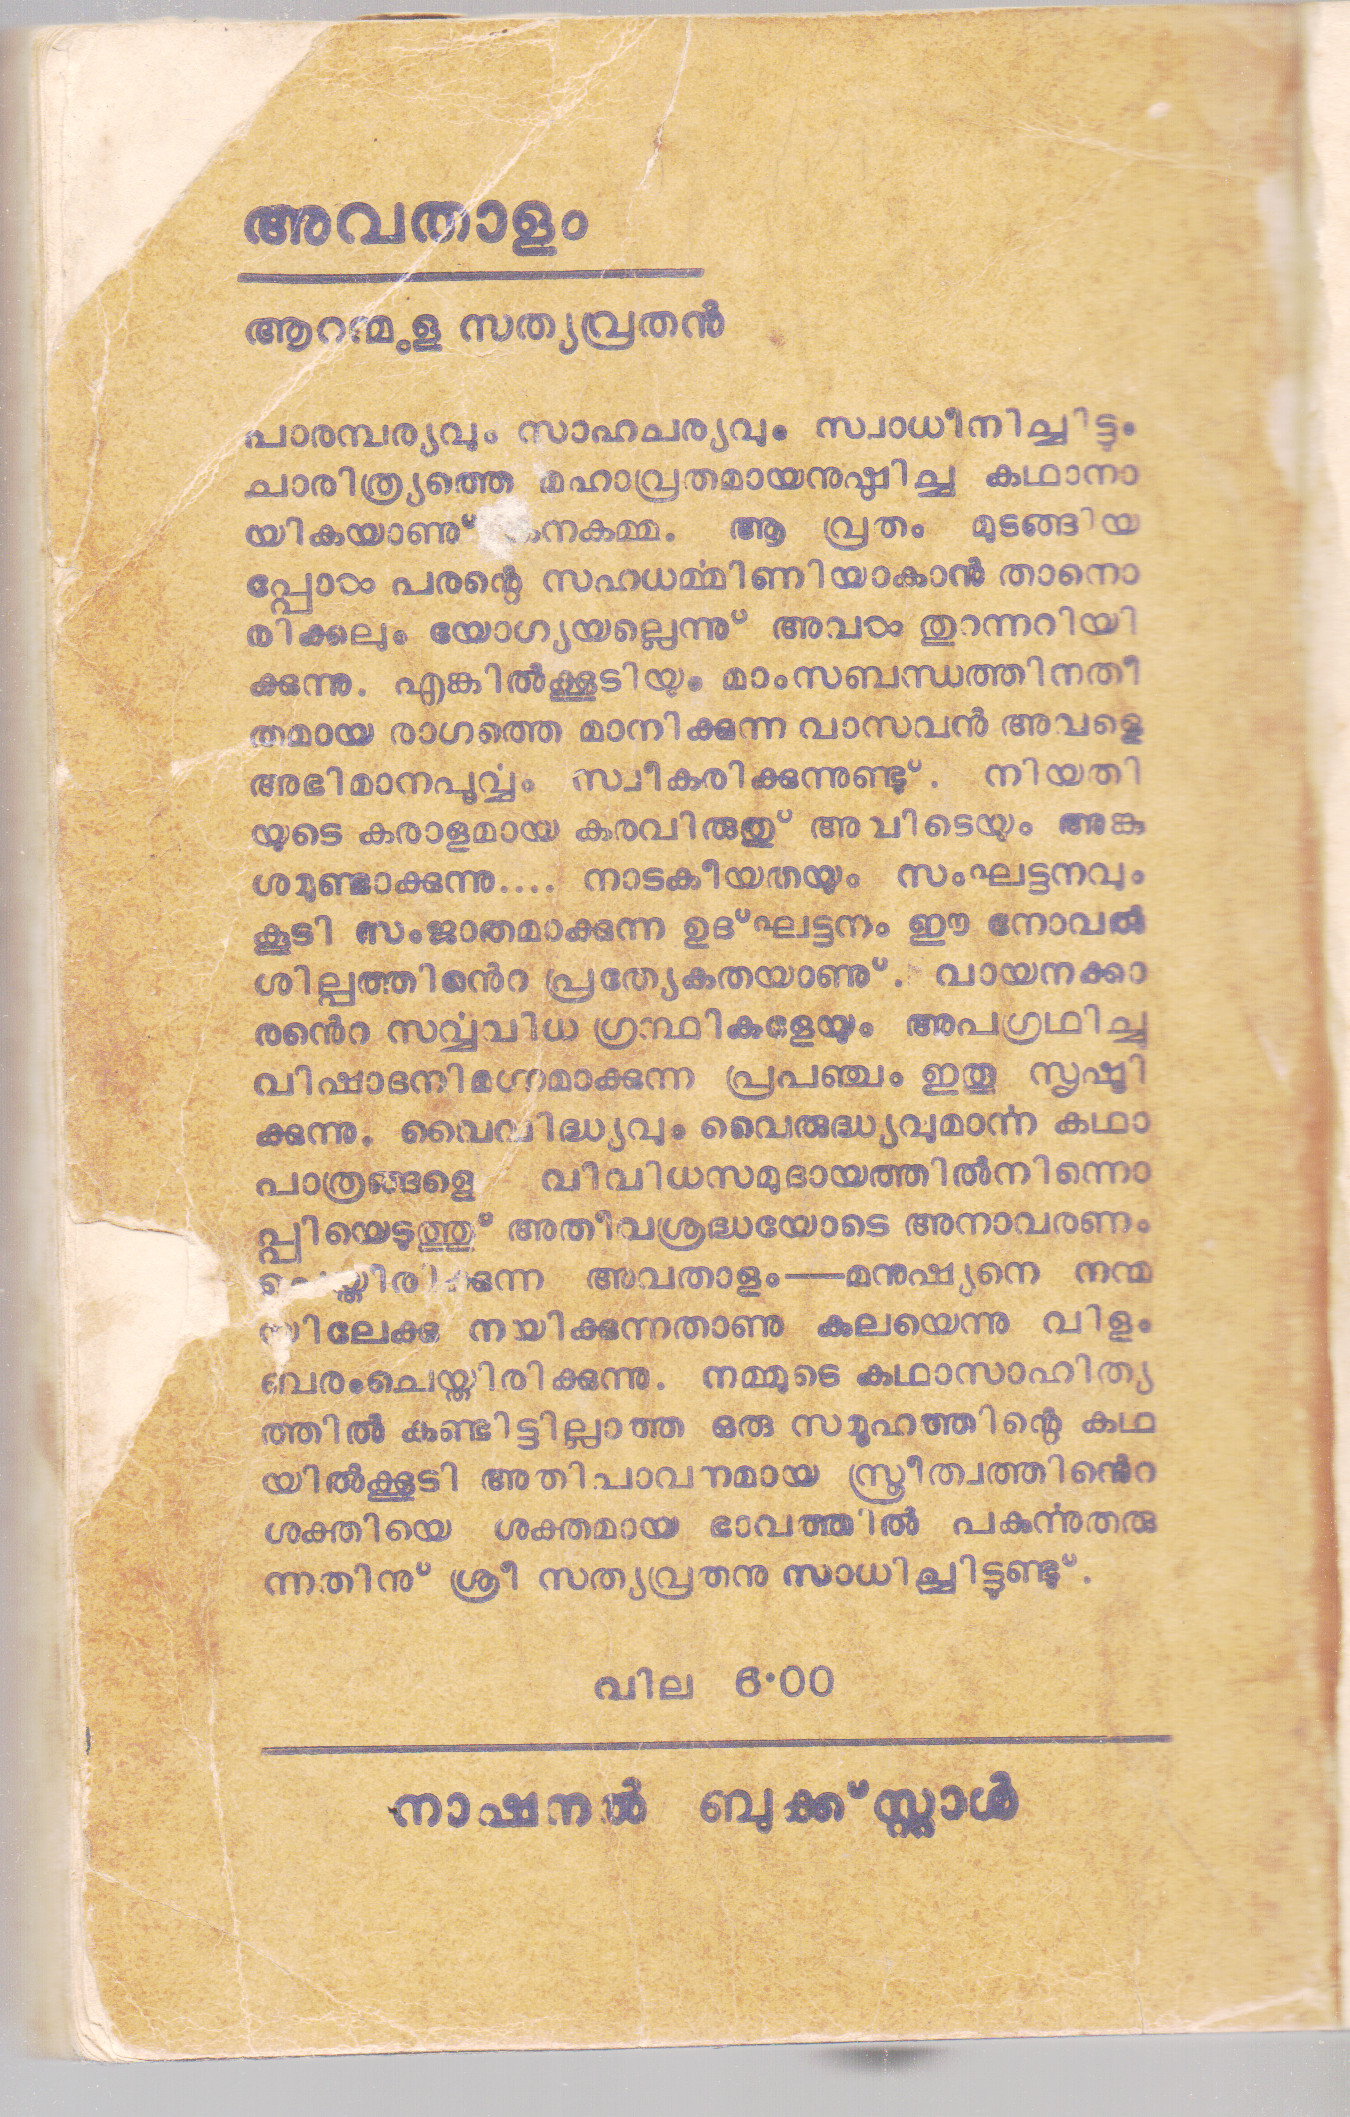 അവതാളം
ആറന്മുള സത്യവ്രതൻ
പാരമ്പര്യവും സാഹചര്യവും സ്വാധീനിച്ചിട്ടും
ചാരിത്ര്യത്തെ മഹാവ്രതമായനുഷ്ഠിച്ച കഥാനാ
യികയാണു് കനകമ്മ. ആ വ്രതം മുടങ്ങിയ
പ്പോൾ പരന്റെ സഹധർമ്മിണിയാകാൻ താനൊ
രിക്കലും യോഗ്യയല്ലെന്നു് അവൾ തുറന്നറിയി
ക്കുന്നു. എങ്കിൽക്കൂടിയും മാംസബന്ധത്തിനതീ
തമായ രാഗത്തെ മാനിക്കുന്ന വാസവൻ അവളെ
അഭിമാനപൂർവ്വം സ്വീകരിക്കുന്നുണ്ടു്. നിയതി
യുടെ കരാളമായ കരവിരുതു് അവിടെയും അങ്കു
ശമുണ്ടാക്കുന്നു.... നാടകീയതയും സംഘട്ടനവും
കൂടി സംജാതമാക്കുന്ന ഉദ്ഘട്ടനം ഈ നോവൽ
ശില്പത്തിൻെറ പ്രത്യേകതയാണു്. വായനക്കാ
രൻെറ സർവ്വവിധ ഗ്രന്ഥികളേയും അപഗ്രഥിച്ചു
വിഷാദനിമഗ്നമാക്കുന്ന പ്രപഞ്ചം ഇതു സൃഷ്ടി
ക്കുന്നു. വൈവിദ്ധ്യവും വൈരുദ്ധ്യവുമാർന്ന കഥാ
പാത്രങ്ങളെ വിവിധസമുദായത്തിൽനിന്നൊ
പ്പിയെടുത്തു് അതീവശ്രദ്ധയോടെ അനാവരണം
ചെയ്തിരിക്കുന്ന അവതാളം—മനുഷ്യനെ നന്മ
യിലേക്കു നയിക്കുന്നതാണു കലയെന്നു വിളം
ബരംചെയ്തിരിക്കുന്നു. നമ്മുടെ കഥാസാഹിത്യ
ത്തിൽ കണ്ടിട്ടില്ലാത്ത ഒരു സമൂഹത്തിന്റെ കഥ
യിൽക്കൂടി അതിപാവനമായ സ്ത്രീത്വത്തിൻെറ
ശക്തിയെ ശക്തമായ ഭാവത്തിൽ പകർന്നുതരു
ന്നതിനു് ശ്രീ സത്യവ്രതനു സാധിച്ചിട്ടുണ്ടു്.
വില 6·00
നാഷനൽ ബുക്ക്സ്റ്റാൾ